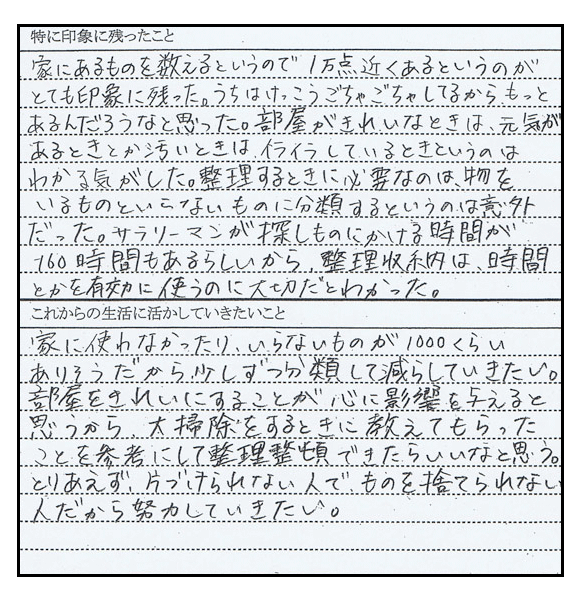 特に印象に残ったこと
家にあるものを数えるというので1万点近くあるというのが
とても印象に残った。うちはけっこうごちゃごちゃしてるからもっと
あるんだろうなと思った。部屋がきれいなときは、元気が
あるときとか汚いときはイライラしているときというのは
わかる気がした。整理するときに必要なのは、物を
いるものといらないものに分類するというのは意外
だった。サラリーマンが探しものにかける時間が
160時間もあるらしいから、整理収納は、時間
とかを有効に使うのに大切だとわかった。
これからの生活に活かしていきたいこと
家に使わなかったり、いらないものが1000くらい
ありそうだから少しずつ分類して減らしていきたい。
部屋をきれいにすることが心に影響を与えると
思うから 大掃除をするときに教えてもらった
ことを参考にして整理整頓できたらいいなと思う。
とりあえず、片づけられない人で、ものを捨てられない
人だから努力していきたい。